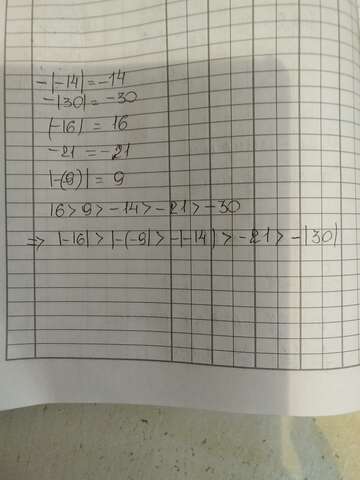 -|-14| = -14
-|30| = -30
|-16| = 16
-21 = -21
|-(9)| = 9
16 > 9 > -14 > -21 > -30
⇒ |-16| > |-(-9| > -|-14| > -21 > -|30|